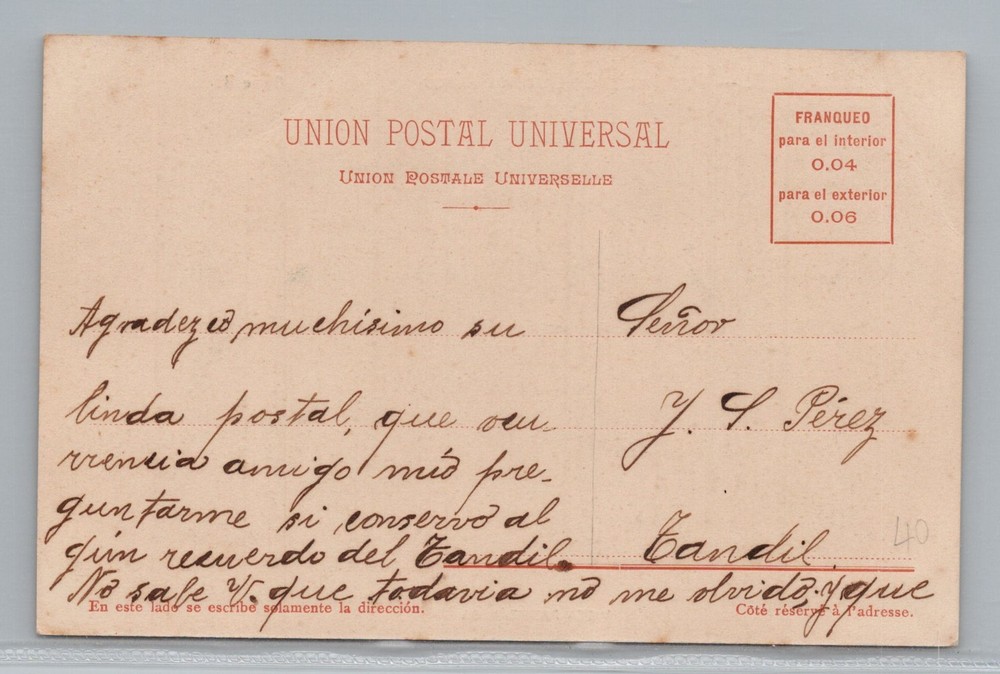 UNION POSTAL UNIVERSAL
UNION POSTALE UNIVERSELLE
FRANQUEO
para el interior
0.04
para el exterior
0.06
Agradezco muchísimo su
linda postal, que ocu-
rrencia amigo mío pre-
guntarme si conservo al
gún recuerdo del Tandil.
No sabe V. que todavia no me olvido, y que
Señor
J. S. Pérez
Tandil
40
En este lado se escribe solamente la dirección.
Côté réservé à l'adresse.